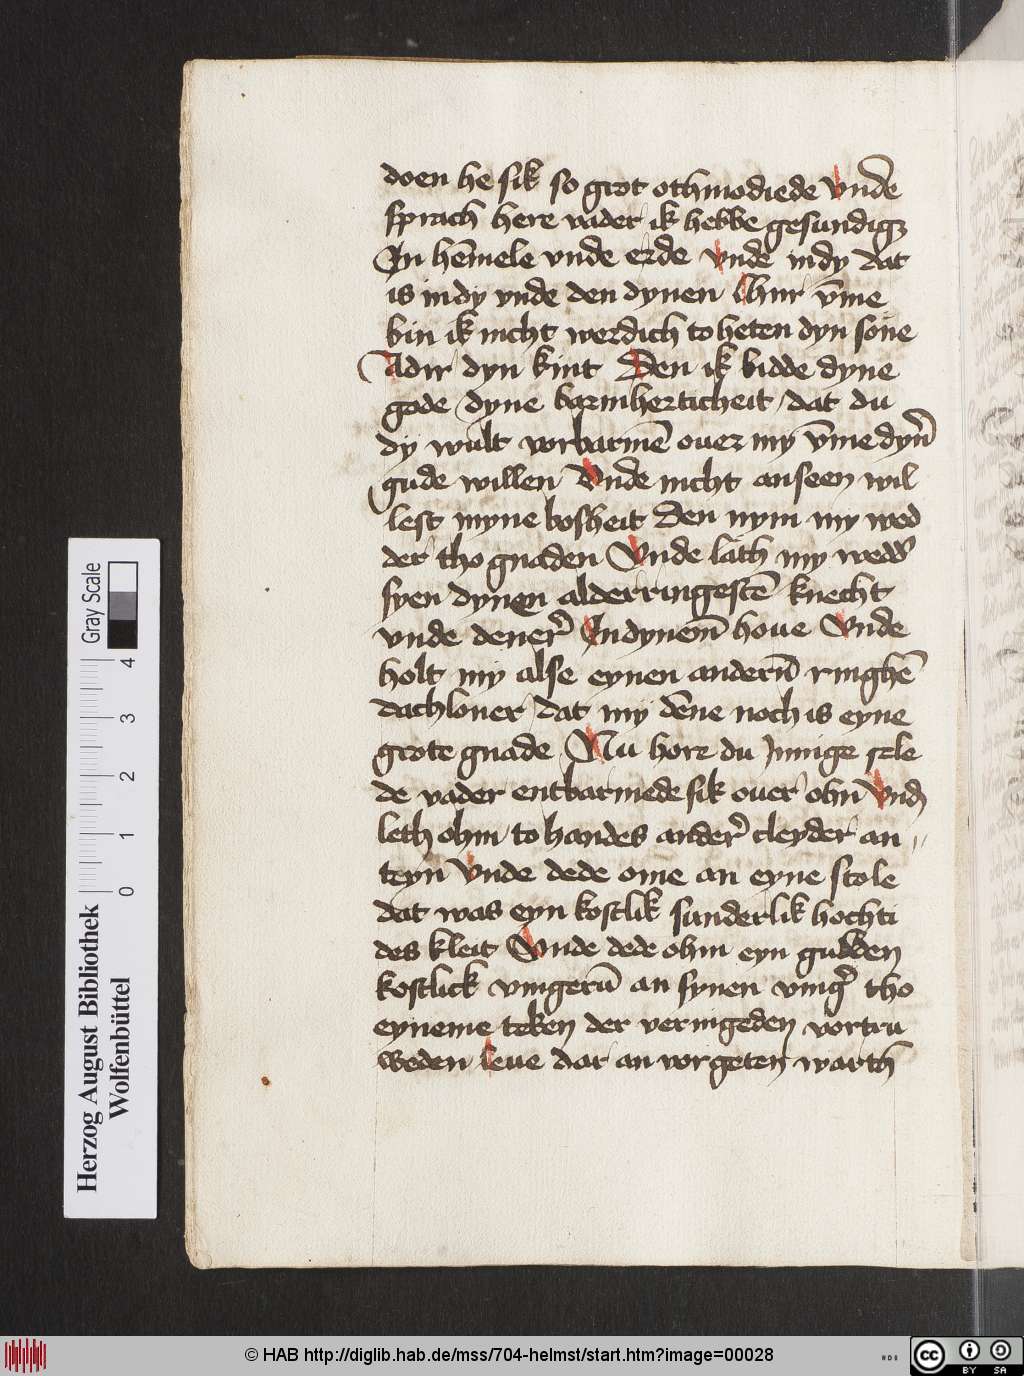 doen he sik so grot othmodiede vnde
sprach here vader ik hebbe gesundigꝫ
In hēmele vnde erde vnde in dy dat
is in dy vnde den dynen Chur v̄me
bin ik nicht werdich to heten dyn sone
Adir dyn kint Den ik bidde dyne
gode dyne barmherticheit dat du
dy wult vorbarmē ouer my v̄me dyn̄
gude willen Vnde nicht anseen wil
lest myne bosheit Den nym my wed
der tho gnaden Vnde lath my wedd̄
syen dynen alderringestē knecht
vnde dener̄ In dynem̄ houe Vnde
holt my alse eynen anderū ringhē
dachloner dat my dēne noch is eyne
grote gnade Nu hore du Innige sele
de vader entbarmede sik ouer ohn vnd̄
leth ohm to handes ander̄ cleyder an〃
teyn Vnde dede ome an eyne stole
dat was eyn kostlik sunderlik hochti
des kleit Vnde dede ohm eyn gulden
kostlick vingerū an synen vinḡ tho
eyneme teken der vernigeden vortru
weden leue dar an vorgeten warth
Gray Scale
0 1 2 3 4
Herzog August Bibliothek
Wolfenbüttel
© HAB http://diglib.hab.de/mss/704-helmst/start.htm?image=00028
cc BY SA